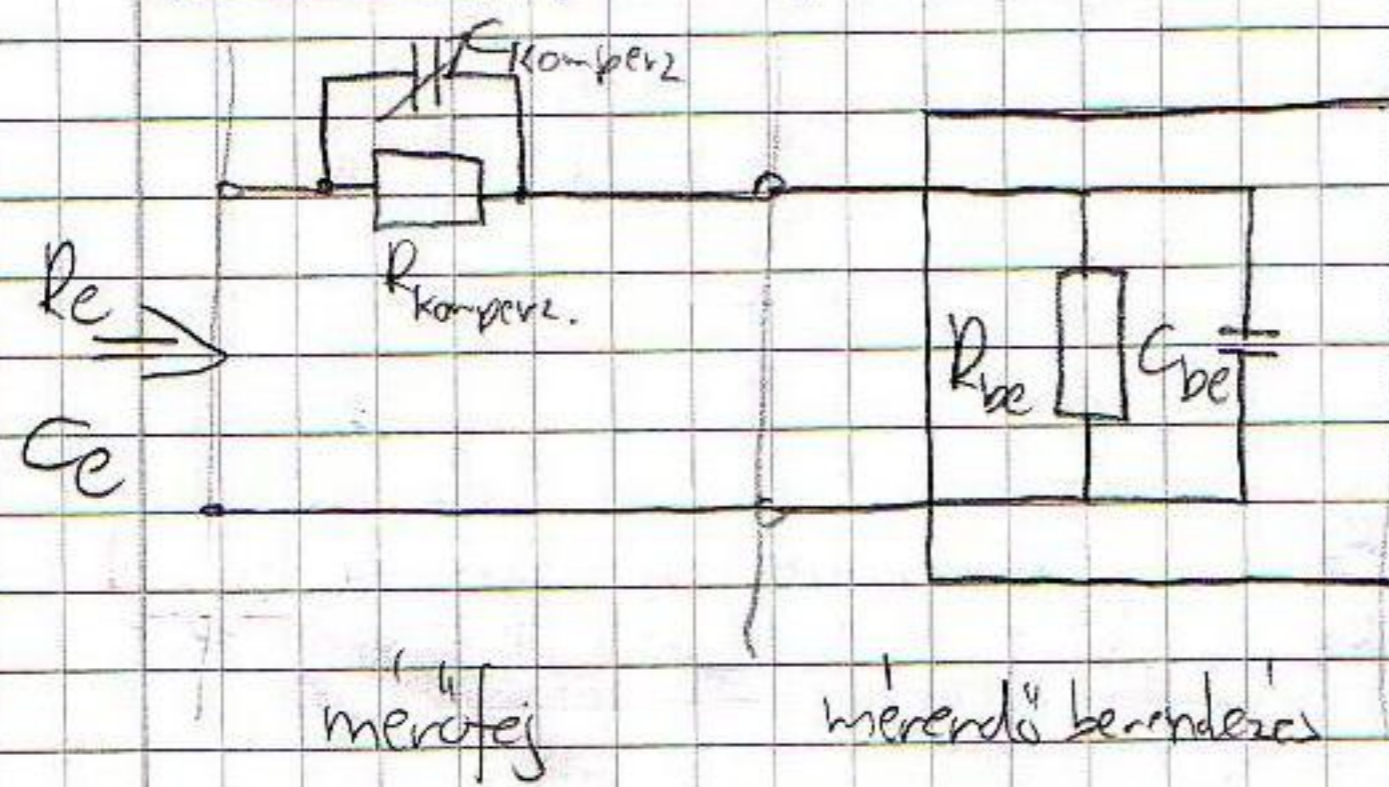 Ckomperz
Rkomperz.
Re
Ce
Rbe
Cbe
mérőfej
mérendő berendezés